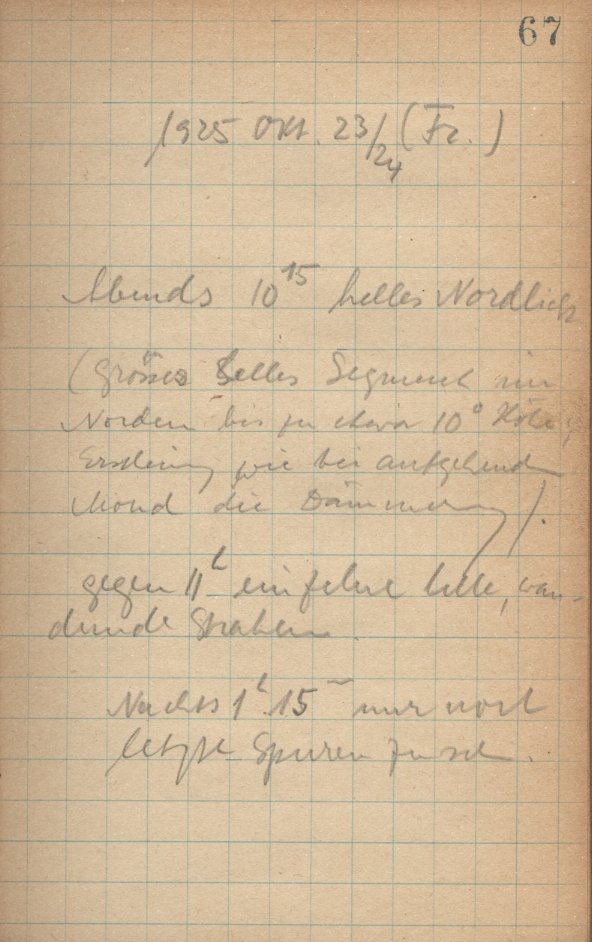 67
1925 Okt. 23/24 (Fr.)
Abends 10 15 helles Nordlicht
(Grosses helles Segment im
Norden bis zu etwa 10° Höhe,
Erscheinung wie bei aufgehendem
Mond die Dämmerung).
gegen 11h einzelne helle, wan-
dernde Strahlen.
Nachts 1h 15m nur noch
letzte Spuren zu sehen.